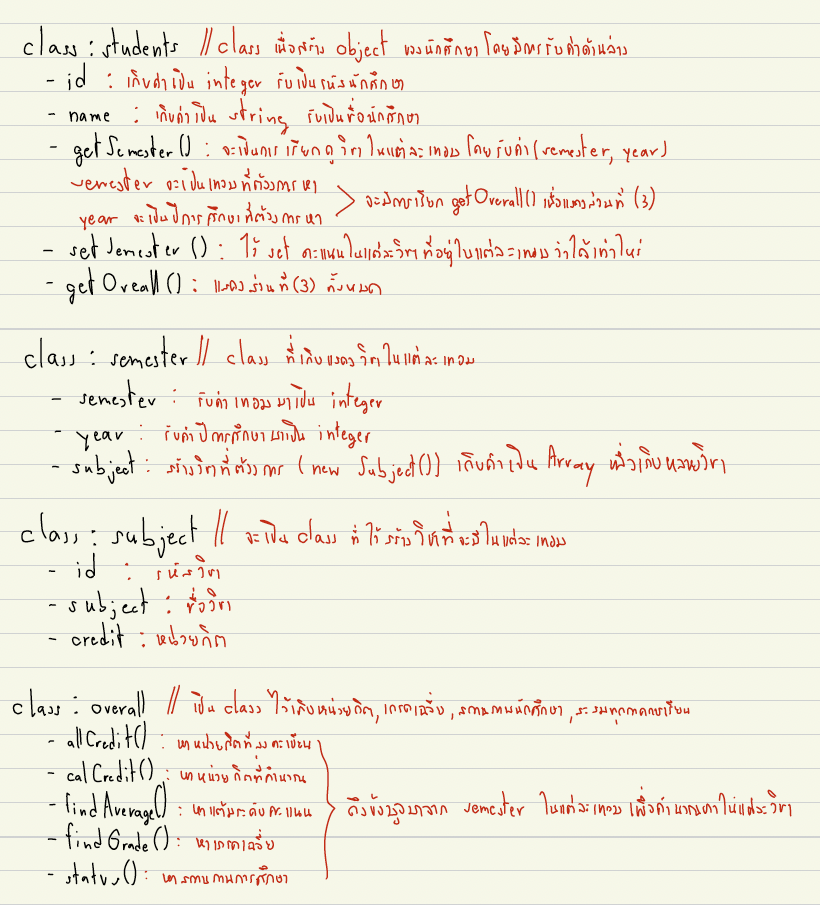 class : students // class เพื่อสร้าง object ของนักศึกษา โดยมีการรับค่าด้านล่าง
- id : เก็บค่าเป็น integer รับเป็นรหัสนักศึกษา
- name : เก็บค่าเป็น string รับเป็นชื่อนักศึกษา
- getSemester() : จะเป็นการเรียกดูวิชาในแต่ละเทอม โดยรับค่า (semester, year)
semester จะเป็นเทอมที่ต้องการหา
year จะเป็นปีการศึกษาที่ต้องการหา
จะมีการเรียก getOverall() เพื่อแสดงส่วนที่ (3)
- setSemester () : ไว้ set คะแนนในแต่ละวิชาที่อยู่ในแต่ละเทอมว่าได้เท่าไหร่
- getOveall() : แสดงส่วนที่ (3) ทั้งหมด
class : semester // class ที่เก็บแสดงวิชาในแต่ละเทอม
- semester : รับค่าเทอมมาเป็น integer
- year : รับค่าปีการศึกษามาเป็น integer
- subject : สร้างวิชาที่ต้องการ (new Subject()) เก็บค่าเป็น Array เพื่อเก็บหลายวิชา
class : subject // จะเป็น class ที่ไว้สร้างวิชาที่จะมีในแต่ละเทอม
- id : รหัสวิชา
- subject : ชื่อวิชา
- credit : หน่วยกิต
class : overall // เป็น class ไว้เก็บหน่วยกิต, เกรดเฉลี่ย, สถานภาพนักศึกษา, ระรมทุกภาคการเรียน
- allCredit() : หาหน่วยกิตที่ลงทะเบียน
- calCredit() : หาหน่วยกิตที่คำนวณ
- findAverage() : หาแต้มระดับคะแนน
ดึงข้อมูลมาจาก semester ในแต่ละเทอม เพื่อคำนวณหาในแต่ละวิชา
- findGrade() : หาเกรดเฉลี่ย
- status() : หาสถานภาพการศึกษา